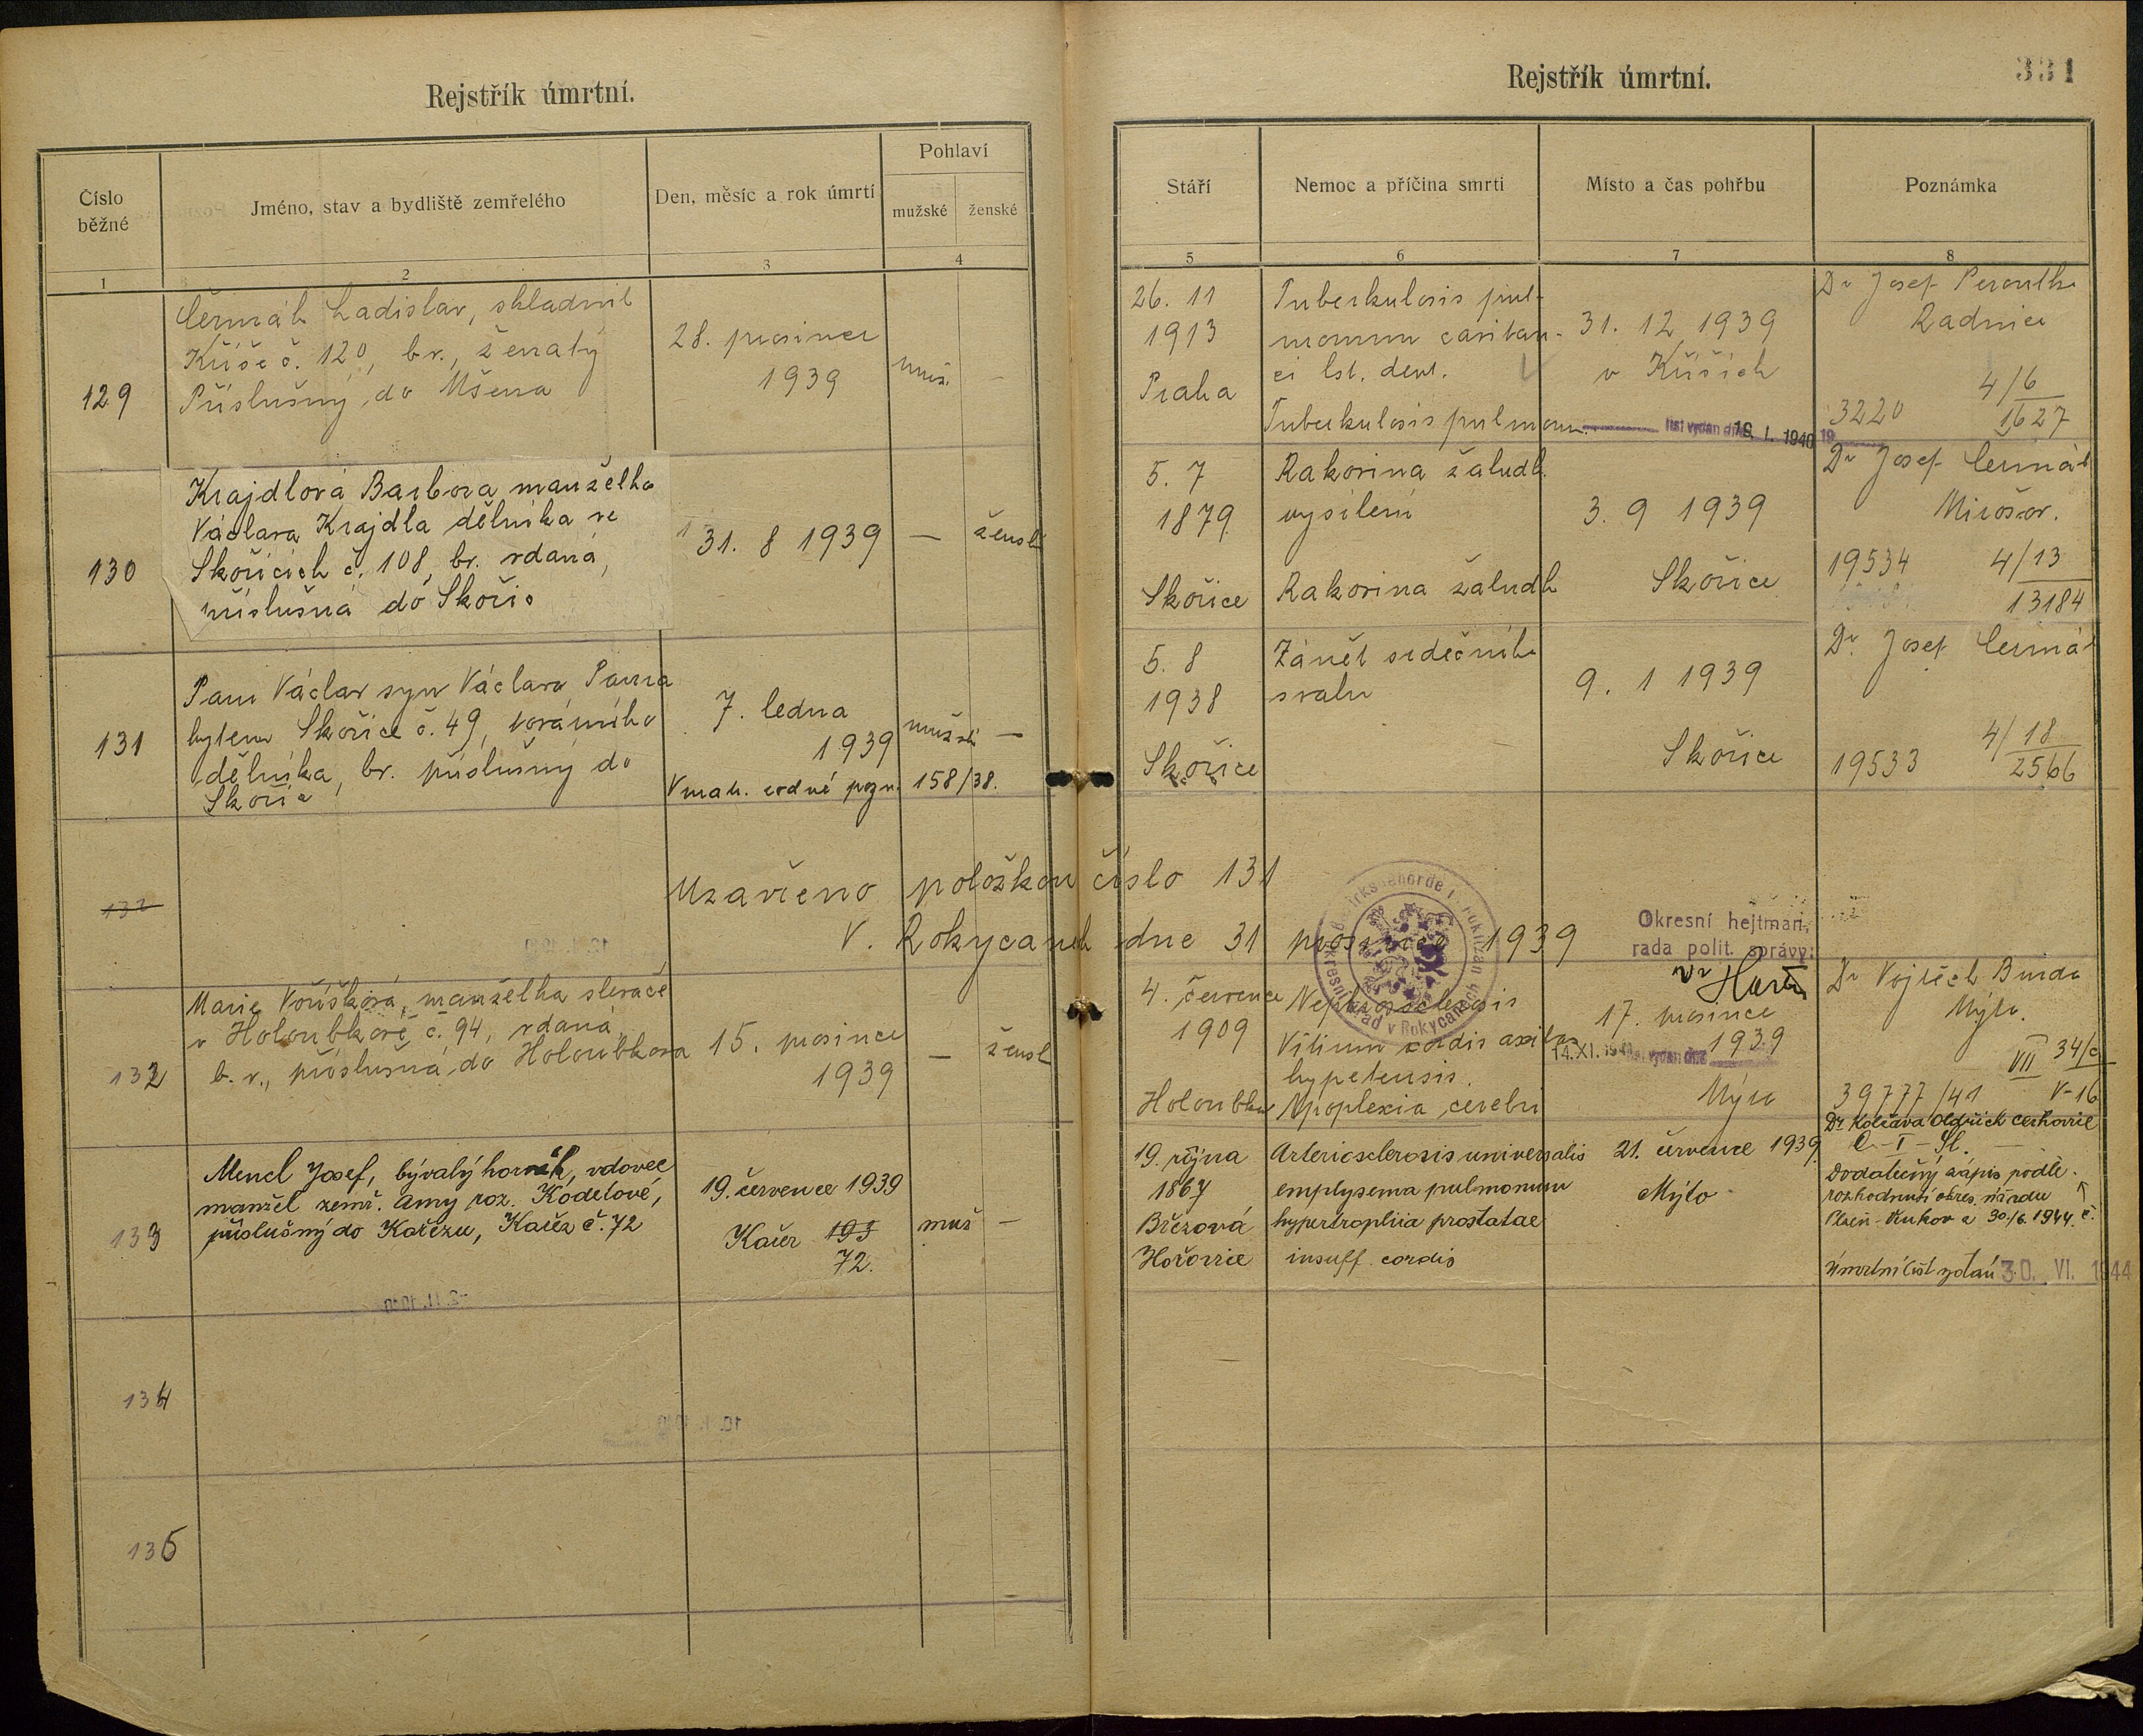 Rejstřík úmrtní.
Číslo běžné
Jméno, stav a bydliště zemřelého
Den, měsíc a rok úmrtí
Pohlaví
mužské
ženské
1
2
3
4
129
Čermák Ladislav, skladník
Kříše č. 120, b.v., ženatý
Příslušný do Mšena
28. prosince
1939
muž.
—
130
Krajdlová Barbora manželka
Václava Krajdla dělníka ve
Skořicích č. 108, bv. vdaná,
příslušná do Skořic
31. 8 1939
—
žensk
131
Pam Václav syn Václava Pama
bytem Skořice č. 49, továrního
dělníka, bv. příslušný do
Skořic
7. ledna
1939
V mat. rodné pozn. 158/38.
mužsk
—
132
Uzavřeno položkou číslo 131
V. Rokycanech dne 31 prosince 1939
132
Marie Voříšková, manželka slévače
v Holoubkově č. 94, vdaná
b. v., příslušná do Holoubkova
15. prosince
1939
—
žensk
133
Mencl Josef, bývalý horník, vdovec
manžel zemř. Anny roz. Kodetové,
příslušný do Kařezu, Kařez č. 72
19. července 1939
Kařez 193
72.
muž
—
134
135
Rejstřík úmrtní.
331
Stáří
Nemoc a příčina smrti
Místo a čas pohřbu
Poznámka
5
6
7
8
26. 11
1913
Praha
Tuberkulosis pul-
monum
ci lst. dext.
Tuberkulosis pulmonum.
31. 12 1939
v Kříších
list vydán dne 19. I. 1940
Dr Josef Peroutka
Radnice
4/6
3220
1627
5. 7
1879
Skořice
Rakovina žaludk.
vysílení
Rakovina žaludk
3. 9 1939
Skořice
Dr Josef Čermák
Mirošov.
19534
4/13
13184
5. 8
1938
Skořice
Zánět srdečního
svalu
9. 1 1939
Skořice
Dr. Josef Čermák
4/18
19533
2566
Okresní úřad v Rokycanech
Okresní hejtman,
rada polit. správy:
4. července
1909
Holoubkov
Nephrosclerosis
Vitium cordis
hypetensis.
Apoplexia cerebri
17. prosince
1939
14. XI. 1941 list vydán dne
Mýto
Dr Vojtěch Burda
Mýto.
VII 34/c
39777/41
V-16
19. října
1867
Březová
Hořovice
Arteriosclerosis universalis
emphysema pulmonum
hypertrophia prostatae
insuff. cordis
21. července 1939.
Mýto
Dr. Koláava Oldřich Cerhovice
Dodatečný zápis podle
rozhodnutí okres. úřadu
30./6. 1944. č.
Úmrtní list vydán 30. VI. 1944